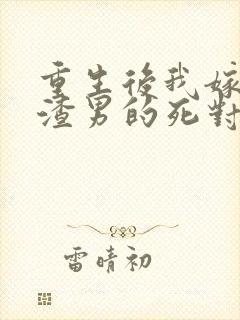 重生後我嫁
渣男的死對
雷晴初